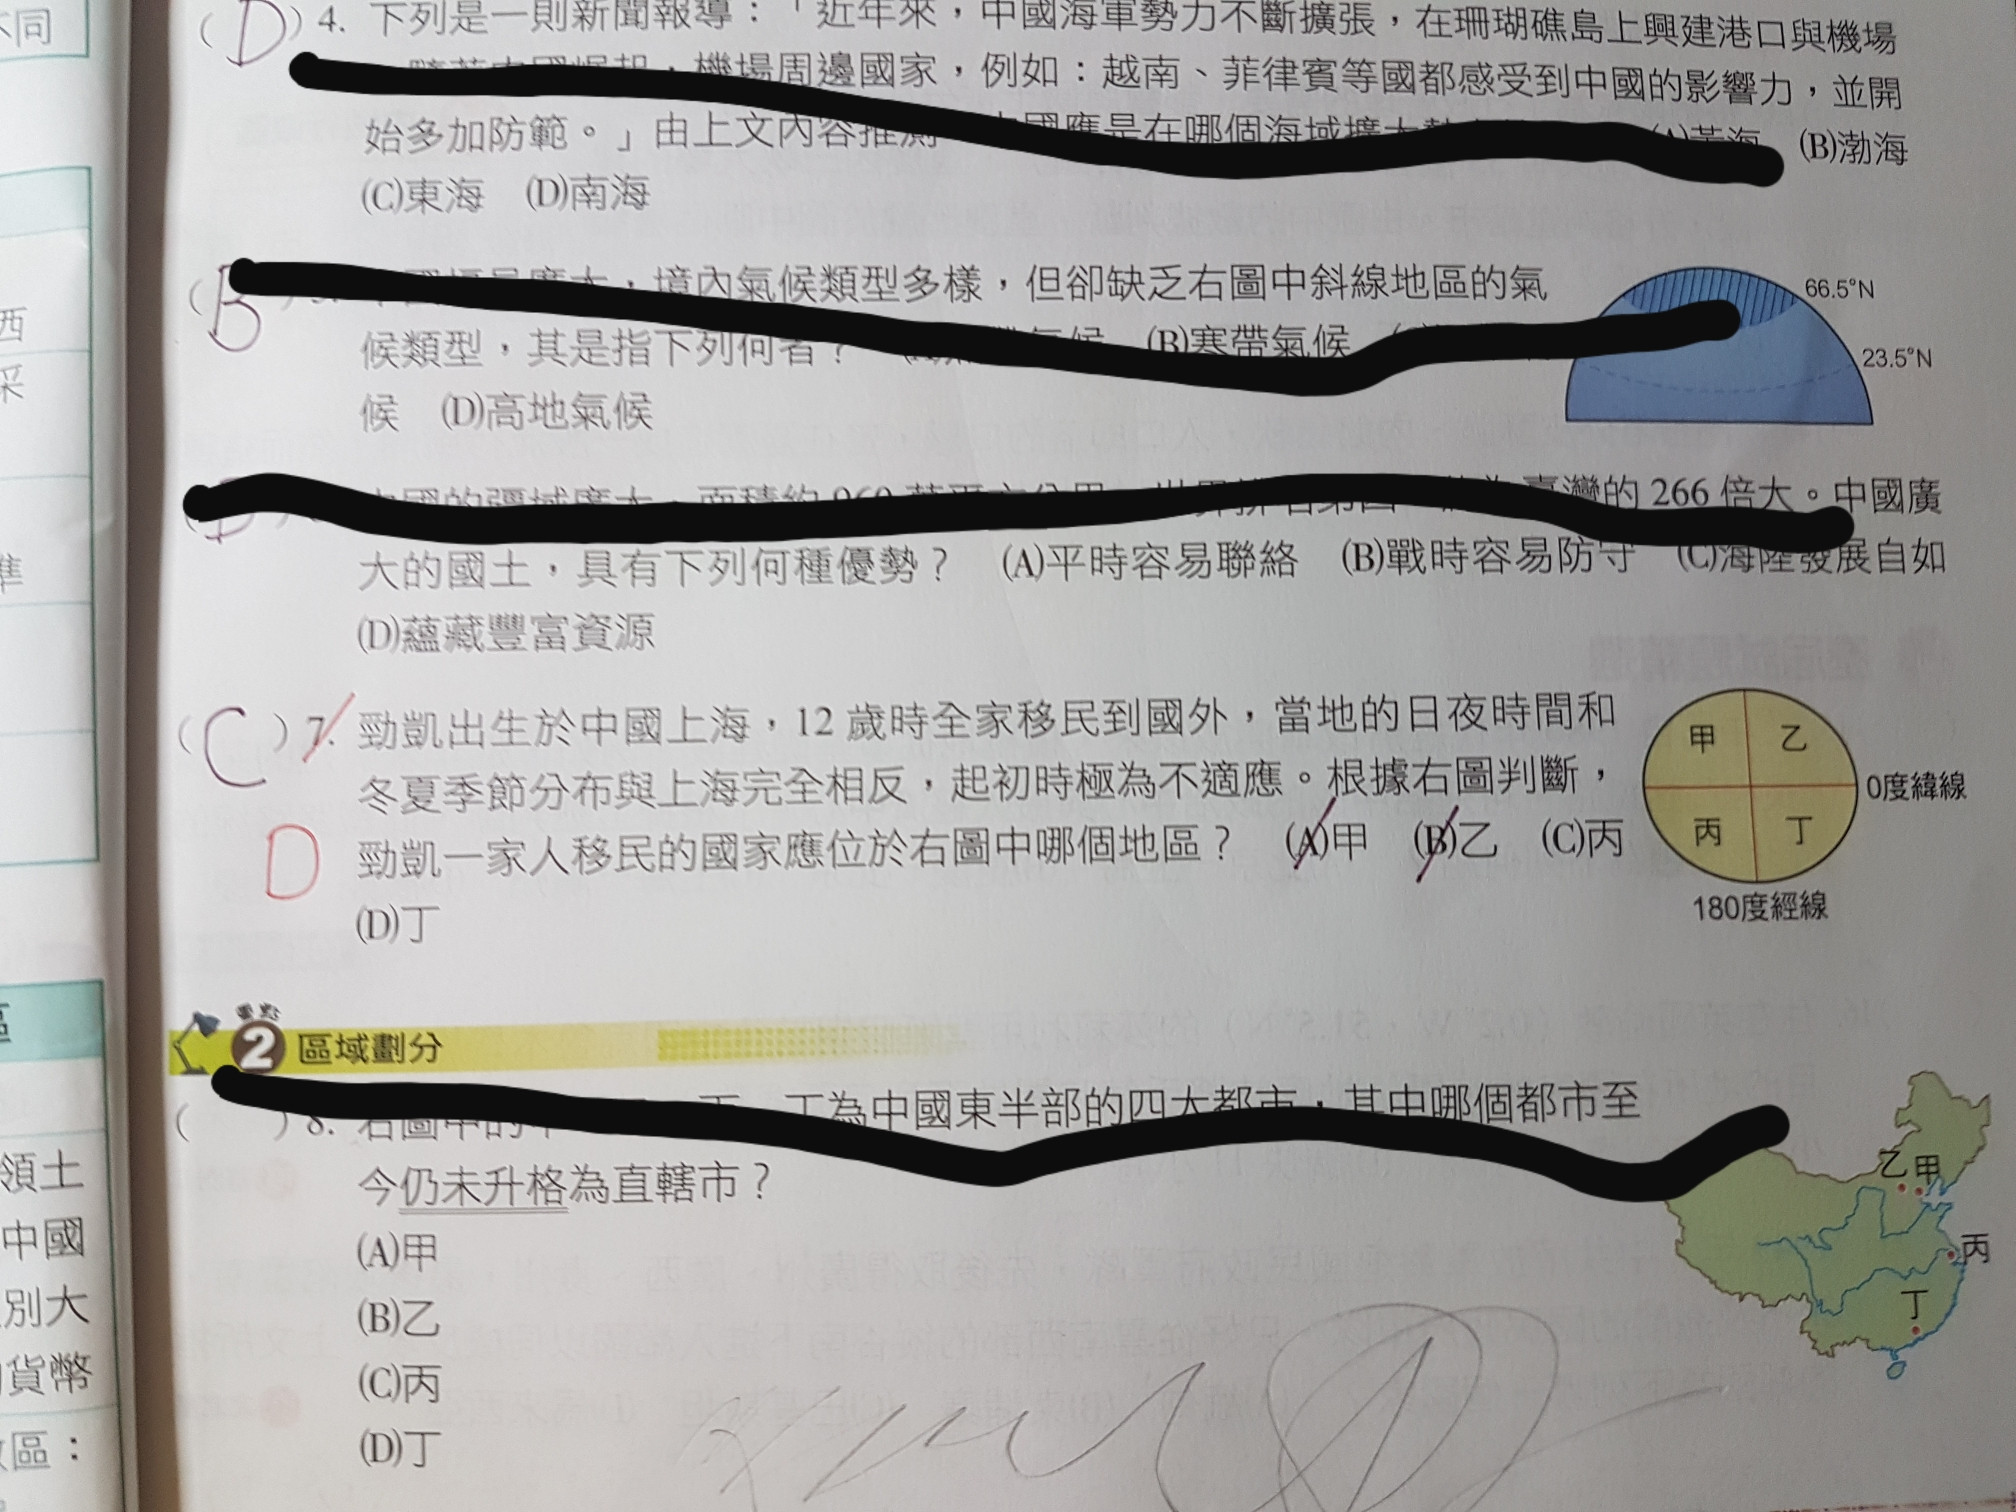 不同
西
采
準
區
領土
中國
別大
貨幣
區：
(D) 4. 下列是一則新聞報導：「近年來，中國海軍勢力不斷擴張，在珊瑚礁島上興建港口與機場
機場周邊國家，例如：越南、菲律賓等國都感受到中國的影響力，並開
始多加防範。」由上文內容推測 國應是在哪個海域擴大 (A)黃海 (B)渤海
(C)東海 (D)南海
(B) 境內氣候類型多樣，但卻缺乏右圖中斜線地區的氣
候類型，其是指下列何者？ 氣候 (B)寒帶氣候
候 (D)高地氣候
66.5°N
23.5°N
臺灣的 266 倍大。中國廣
大的國土，具有下列何種優勢？ (A)平時容易聯絡 (B)戰時容易防守 (C)海陸發展自如
(D)蘊藏豐富資源
(C) 7. 勁凱出生於中國上海，12 歲時全家移民到國外，當地的日夜時間和
冬夏季節分布與上海完全相反，起初時極為不適應。根據右圖判斷，
D 勁凱一家人移民的國家應位於右圖中哪個地區？ (A)甲 (B)乙 (C)丙
(D)丁
甲 乙
0度緯線
丙 丁
180度經線
2 區域劃分
( ) 8. 右圖中的 丁為中國東半部的四大都市，其中哪個都市至
今仍未升格為直轄市？
(A)甲
(B)乙
(C)丙
(D)丁
乙 甲
丙
丁